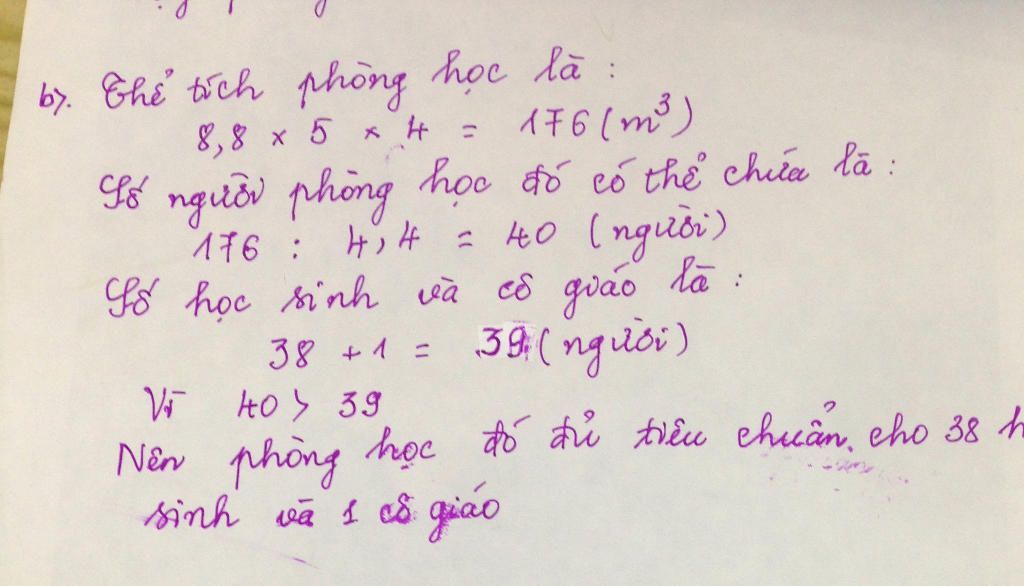 b). Thể tích phòng học là :
8,8 × 5 × 4 = 176 (m³)
Số người phòng học đó có thể chứa là :
176 : 4,4 = 40 (người)
Số học sinh và cô giáo là :
38 + 1 = 39 (người)
Vì 40 > 39
Nên phòng học đó đủ tiêu chuẩn cho 38 h
sinh và 1 cô giáo